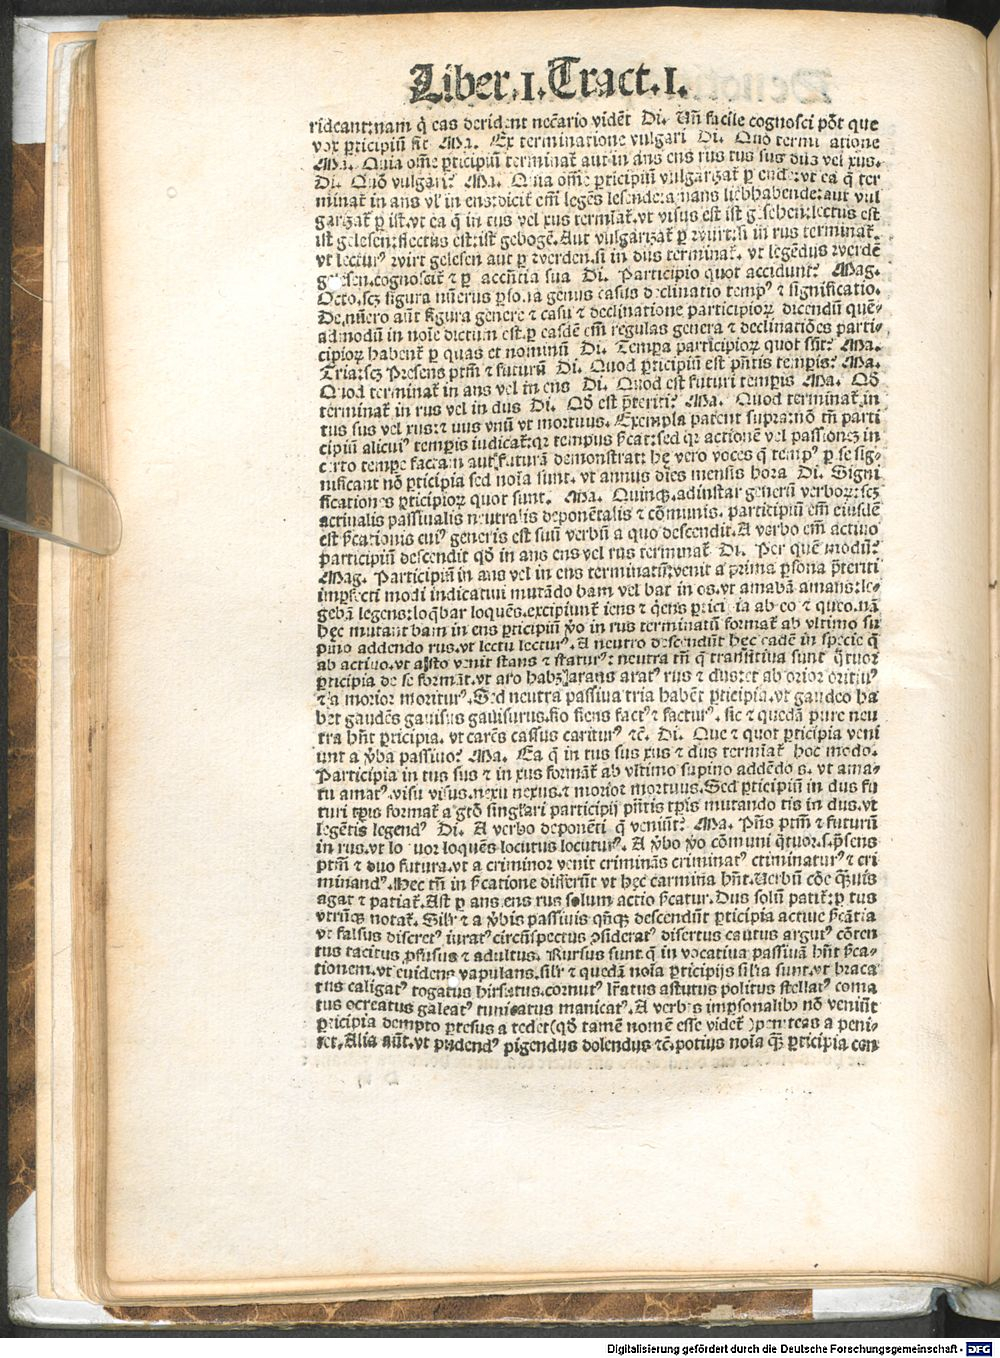 Liber.I.Tract.I.
rideant:nam q̄ eas derident neccārio vident̄ Di. Uñ facile cognosci pōt que
vox p̱ticipiū sit Ma. Ex terminatione vulgari Di. Quō termi atione
Ma. Quia om̄e p̱ticipiū terminat̄ aut in ans ens rus tus sus dus vel xus.
Di. Quō vulgari? Ma. Quia om̄e p̱ticipiū vulgarizat̄ p̱ ende:vt ea q̄ ter
minat̄ in ans vl' in ens:dicit̄ em̄ legēs lesende:amans liebhabende:aut vul
garizat̄ p̱ ist.vt ea q̄ in tus vel xus termiat̄.vt visus est ist gesehen:lectus est
ist gelesen:flectus est:ist gebogē.Aut vulgarizat̄ p̱ wirt:si in rus terminat̄.
vt lectur⁹ wirt gelesen aut p̱ werden.si in dus terminat̄. vt legēdus werdē
gelesen.cognoscit̄ ⁊ p̱ accn̄tia sua Di. Participio quot accidunt? Mag.
Octo.scꝫ figura nūerus p̱sona genus casus declinatio temp⁹ ⁊ significatio.
De nūero aūt figura genere ⁊ casu ⁊ declinatione participioꝝ dicendū quē-
admodū in noīe dictum est.p̱ easdē em̄ regulas genera ⁊ declinatiōes parti-
cipioꝝ habent̄ p̱ quas et nominū Di. Tempa participioꝝ quot sūt? Ma.
Tria:scꝫ Presens ptm̄ ⁊ futurū Di. Quod p̱ticipiū est pn̄tis tempis? Ma.
Quod terminat̄ in ans vel in ens Di. Quod est futuri tempis Ma. Qd̄
terminat̄ in rus vel in dus Di. Qd̄ est p̄teriti? Ma. Quod terminat̄ in
tus sus vel xus:⁊ uus vnū vt mortuus. Exempla patent supra:nō tm̄ parti
cipiū alicui⁹ tempis iudicat̄:qꝛ tempus s̄cat:sed qꝛ actionē vel passionē in
certo tempe factam aut futurā demonstrat: hę vero voces q̄ temp⁹ p̱ se sig-
nificant nō p̱ticipia sed noīa sunt. vt annus dies mensis hora Di. Signi
ficationes p̱ticipioꝝ quot sunt. Ma. Quinqꝫ.adinstar generū verboꝝ:scꝫ
actiualis passiualis neutralis deponētalis ⁊ cōmunis. participiū em̄ eiusdē
est s̄cationis cui⁹ generis est suū verbū a quo descendit.A verbo em̄ actiuo
participiū descendit qd̄ in ans ens vel rus terminat̄ Di. Per quē modū?
Mag. Participiū in ans vel in ens terminatū:venit a prima p̱sona p̄teriti
imp̱fecti modi indicatiui mutādo bam vel bar in os.vt amabā amans:le-
gebā legens:loq̄bar loquēs.excipiunt̄ iens ⁊ q̄ens p̱tici ia ab eo ⁊ queo.nā
hęc mutant bam in ens p̱ticipiū v̄o in rus terminatū format̄ ab vltimo su
pino addendo rus.vt lectu lectur⁹.A neutro descendūt hęc eadē in specie q̄
ab actiuo.vt a sto venit stans ⁊ statur⁹: neutra tn̄ q̄ transitiua sunt q̄tuor
p̱ticipia de se formāt.vt aro habꝫ arans arat⁹ rus ⁊ dus:et ab orior oritur⁹
⁊ a morior moritur⁹.Sed neutra passiua tria habēt p̱ticipia.vt gaudeo ha
bet gaudēs gauisus gauisurus.fio fiens fact⁹ ⁊ factur⁹. sic ⁊ quedā pure neu
tra hn̄t p̱ticipia. vt carēs cassus caritur⁹ ⁊c̄. Di. Que ⁊ quot p̱ticipia veni
unt a v̄ba passiuo? Ma. Ea q̄ in tus sus xus ⁊ dus termiat̄ hoc modo.
Participia in tus sus ⁊ in xus format̄ ab vltimo supino addēdo s. vt ama-
tu amat⁹.visu visus.nexu nexus.⁊ morior mortuus.Sed p̱ticipiū in dus fu
turi tp̄is format̄ a gtō singlari participij pn̄tis tp̄is mutando tis in dus.vt
legētis legend⁹ Di. A verbo deponēti q̄ veniūt? Ma. Pn̄s ptm̄ ⁊ futurū
in rus.vt lo uor loquēs locutus locutur⁹. A v̄bo v̄o cōmuni q̄tuor.s.p̄sens
ptm̄ ⁊ duo futura.vt a criminor venit criminās criminat⁹ criminatur⁹ ⁊ cri
minand⁹.Hec tn̄ in s̄catione differūt vt hęc carmina hn̄t.Uerbū cōe q̄uis
agat ⁊ patiat̄.Ast p̱ ans ens rus solum actio s̄catur.Dus solū patit̄:p̱ tus
vtrūqꝫ notat̄. Silr̄ ⁊ a v̄bis passiuis qn̄qꝫ descendūt p̱ticipia actiue s̄cātia
vt falsus discret⁹ iurat⁹ circūspectus ꝯsiderat⁹ disertus cautus argut⁹ cōten
tus tacitus p̱fusus ⁊ adultus. Rursus sunt q̄ in vocatiua passiuā hn̄t s̄ca-
tionem.vt euidens vapulans.silr̄ ⁊ quedā noīa p̱ticipijs silia sunt.vt braca
tus caligat⁹ togatus hirsutus.cornut⁹ lr̄atus astutus politus stellat⁹ coma
tus ocreatus galeat⁹ tunicatus manicat⁹.A verbis imp̱sonalib⁹ nō veniūt
p̱ticipia dempto p̱tesus a tedet(qd̄ tamē nomē esse videt̄)peniteas a peni-
tet.Alia aūt.vt pudend⁹ pigendus dolendus ⁊c̄.potius noīa q̄ p̱ticipia con
Digitalisierung gefördert durch die Deutsche Forschungsgemeinschaft - DFG